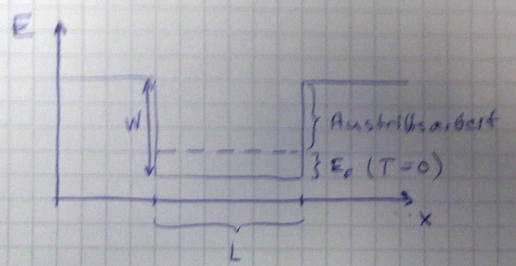 E
W
Austrittsarbeit
E₀ (T=0)
x
L